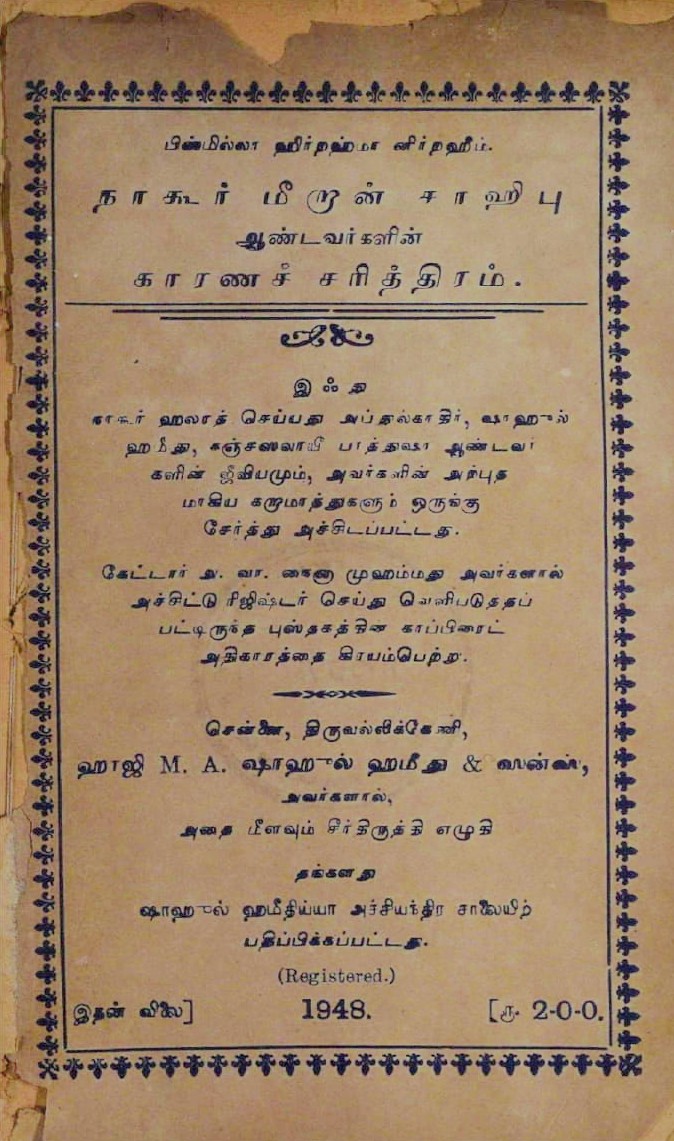 பிஸ்மில்லா ஹிர்றஹ்மா னிர்றஹீம்.
நாகூர் மீறான் சாஹிபு
ஆண்டவர்களின்
காரணச் சரித்திரம்.
இஃது
நாகூர் ஹலறத் செய்யது அப்துல்காதிர், ஷாஹுல்
ஹமீது, கஞ்சஸவாயீ பாத்துஷா ஆண்டவர்
களின் ஜீவியமும், அவர்களின் அற்புத
மாகிய கறாமாத்துகளும் ஒருங்கு
சேர்த்து அச்சிடப்பட்டது.
கேட்டார் அ. வா. நைனா முஹம்மது அவர்களால்
அச்சிட்டு ரிஜிஷ்டர் செய்து வெளிபடுத்தப்
பட்டிருந்த புஸ்தகத்தின் காப்பிரைட்
அதிகாரத்தை கிரயம்பெற்று.
சென்னை, திருவல்லிக்கேணி,
ஹாஜி M. A. ஷாஹுல் ஹமீது & ஸன்ஸ்,
அவர்களால்,
அதை மீளவும் சீர்திருத்தி எழுதி
தங்களது
ஷாஹுல் ஹமீதிய்யா அச்சியந்திர சாலையிற்
பதிப்பிக்கப்பட்டது.
(Registered.)
இதன் விலை] 1948. [ரூ. 2-0-0.